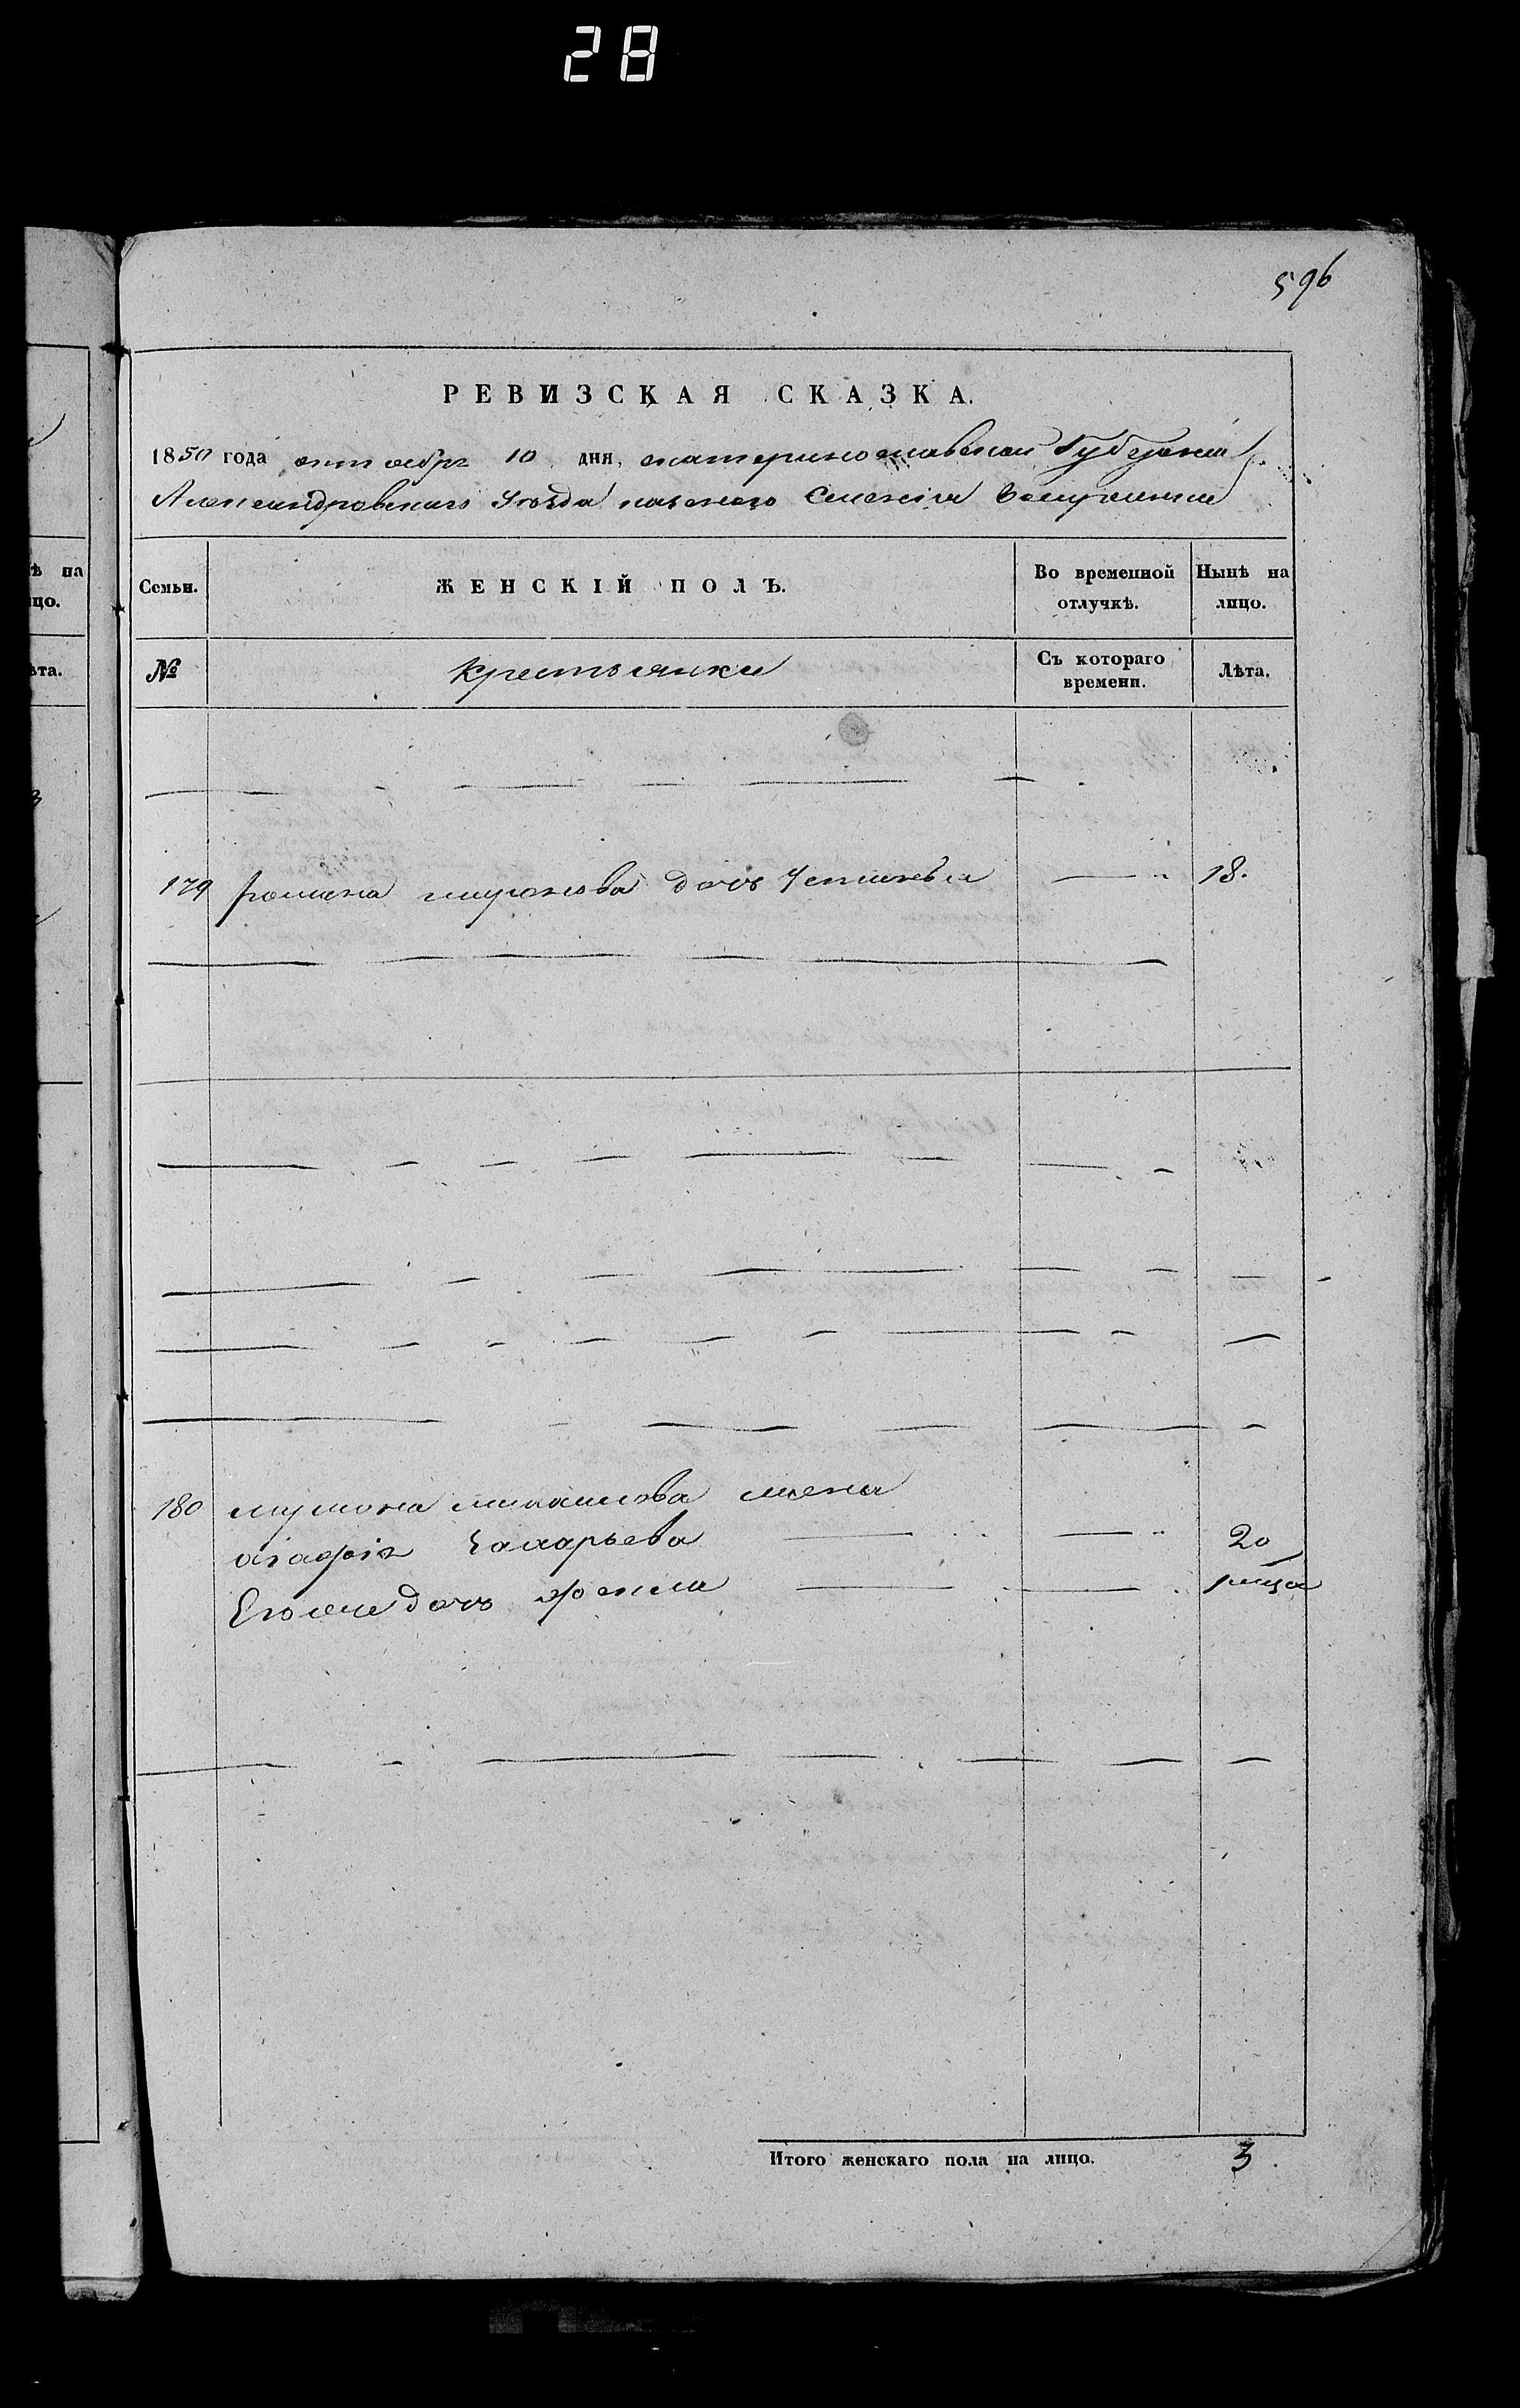 28
596
РЕВИЗСКАЯ СКАЗКА.
1850 года октября 10 дня, екатеринославской Губернии
Александровского Уезда казенного Селения
Семьи. ЖЕНСКІЙ ПОЛЪ. Во временной отлучкѣ. Нынѣ на лицо.
№ крестьянки Съ котораго времени. Лѣта.
179 романа миронова дочь Устинья 18.
180 михайлова жена
агафія Захарьева 20
Его дочь
Итого женскаго пола на лицо. 3
ѣ на
цо.
ѣта.